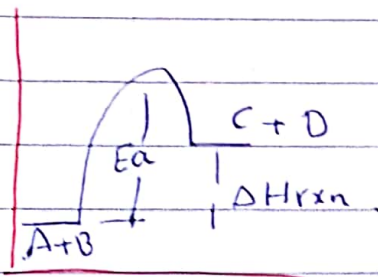 C + D
Ea
ΔHrxn
A+B